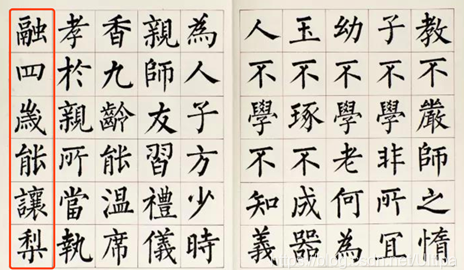 教不嚴師之惰
子不學非所宜
幼不學老何為
玉不琢不成器
人不學不知義
為人子方少時
親師友習禮儀
香九齡能溫席
孝於親所當執
融四歲能讓梨